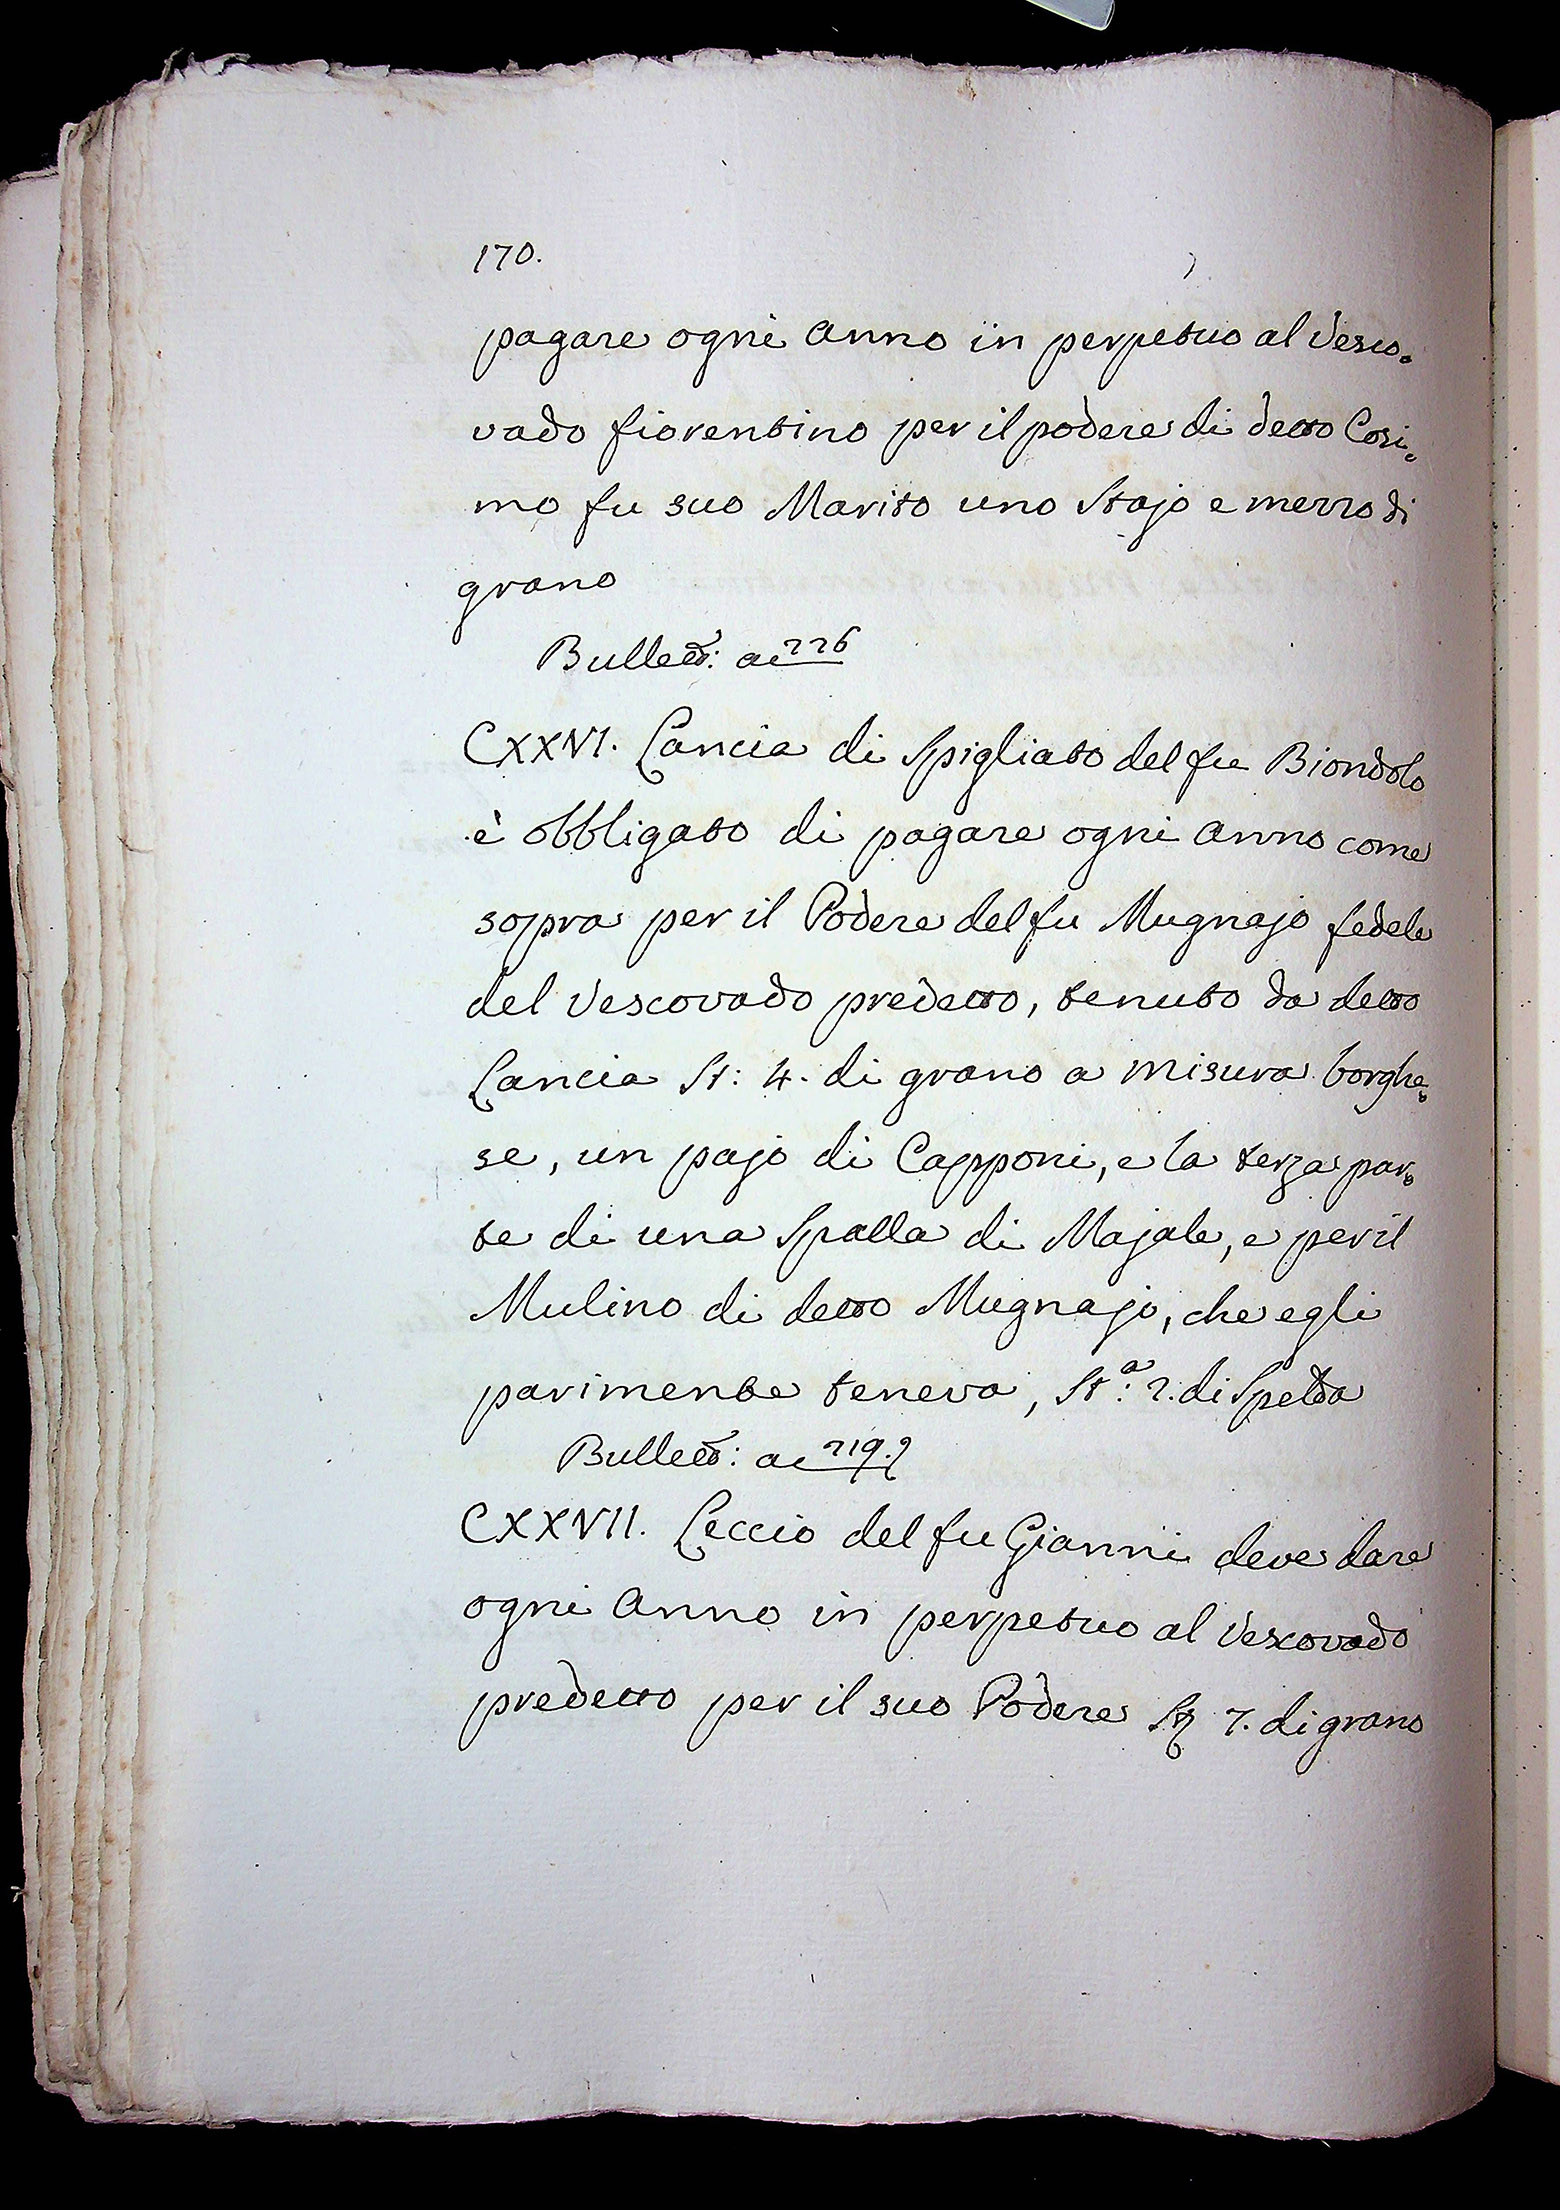 170.
pagare ogni Anno in perpetuo al Vesco-
vado fiorentino per il podere di detto Cosi-
mo fu suo Marito uno Stajo e mezzo di
grano
Bullett: ac 226
CXXVI. Lancia di Spigliato del fu Biondolo
è obbligato di pagare ogni Anno come
sopra per il Podere del fu Mugnajo fedele
del Vescovado predetto, tenuto da detto
Lancia St: 4. di grano a misura borghe-
se, un pajo di Capponi, e la terza par-
te di una Spalla di Majale, e per il
Mulino di detto Mugnajo, che egli
parimente teneva, Stª: 2. di Spelda
Bullett: ac 219.
CXXVII. Leccio del fu Gianni deve dare
ogni Anno in perpetuo al Vescovado
predetto per il suo Podere St 7. di grano